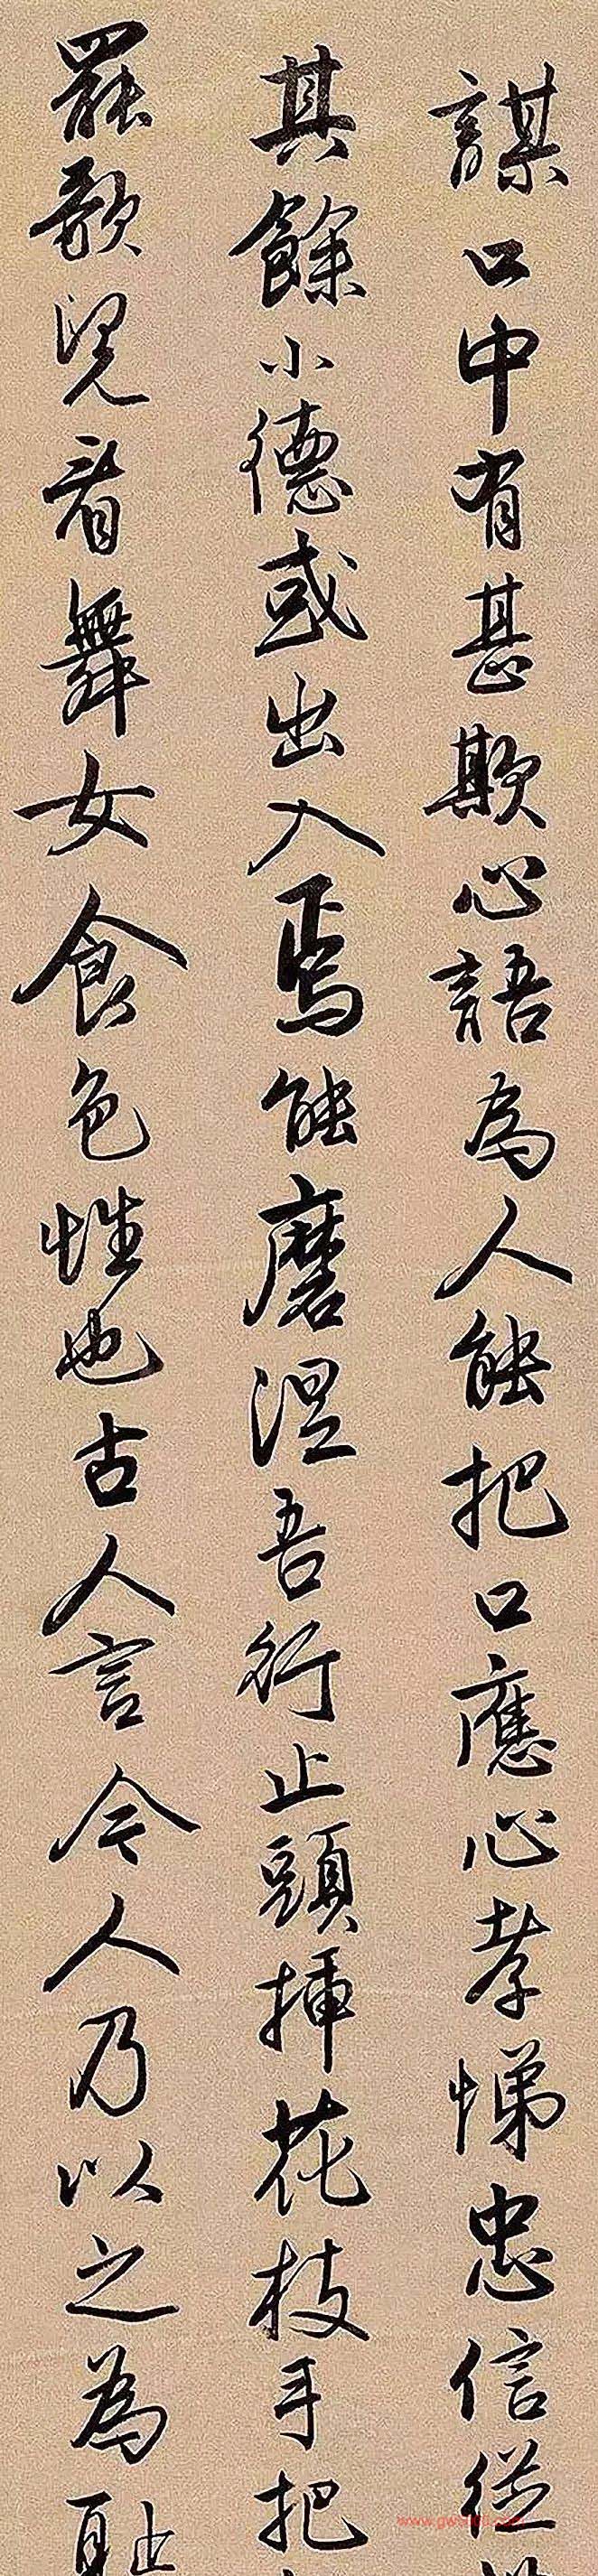 謀口中有甚欺心語為人能把口應心孝悌忠信從
其餘小德或出入焉能磨涅吾行止頭插花枝手把
罷歌兒看舞女食色性也古人言今人乃以之為耻